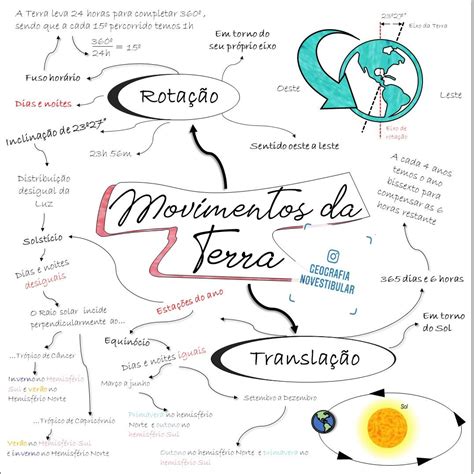 A Terra leva 24 horas para completar 360º,
sendo que a cada 15º percorrido temos 1h
360º
24h
= 15º
Fuso horário
Dias e noites
Inclinação de 23º27"
23h 56m
Rotação
Em torno do
seu próprio eixo
Sentido oeste a leste
23º27"
Eixo da Terra
Oeste
Leste
Eixo de
rotação
Distribuição
desigual da
Luz
Solstício
Dias e noites
desiguais
O Raio solar incide
perpendicularmente ao...
...Trópico de Câncer
Inverno no Hemisfério
Sul e verão no
Hemisfério Norte
...Trópico de Capricórnio
Verão no Hemisfério Sul
e inverno no
Hemisfério Norte
Movimentos da
Terra
GEOGRAFIA
NOVESTIBULAR
A cada 4 anos
temos o ano
bissexto para
compensar as 6
horas restante
365 dias e 6 horas
Em torno
do Sol
Translação
Estações do ano
Equinócio
Dias e noites iguais
Março a junho
Primavera no hemisfério
Norte e outono no
hemisfério Sul
Setembro a Dezembro
Outono no hemisfério Norte
e primavera no hemisfério
Sul
Sol